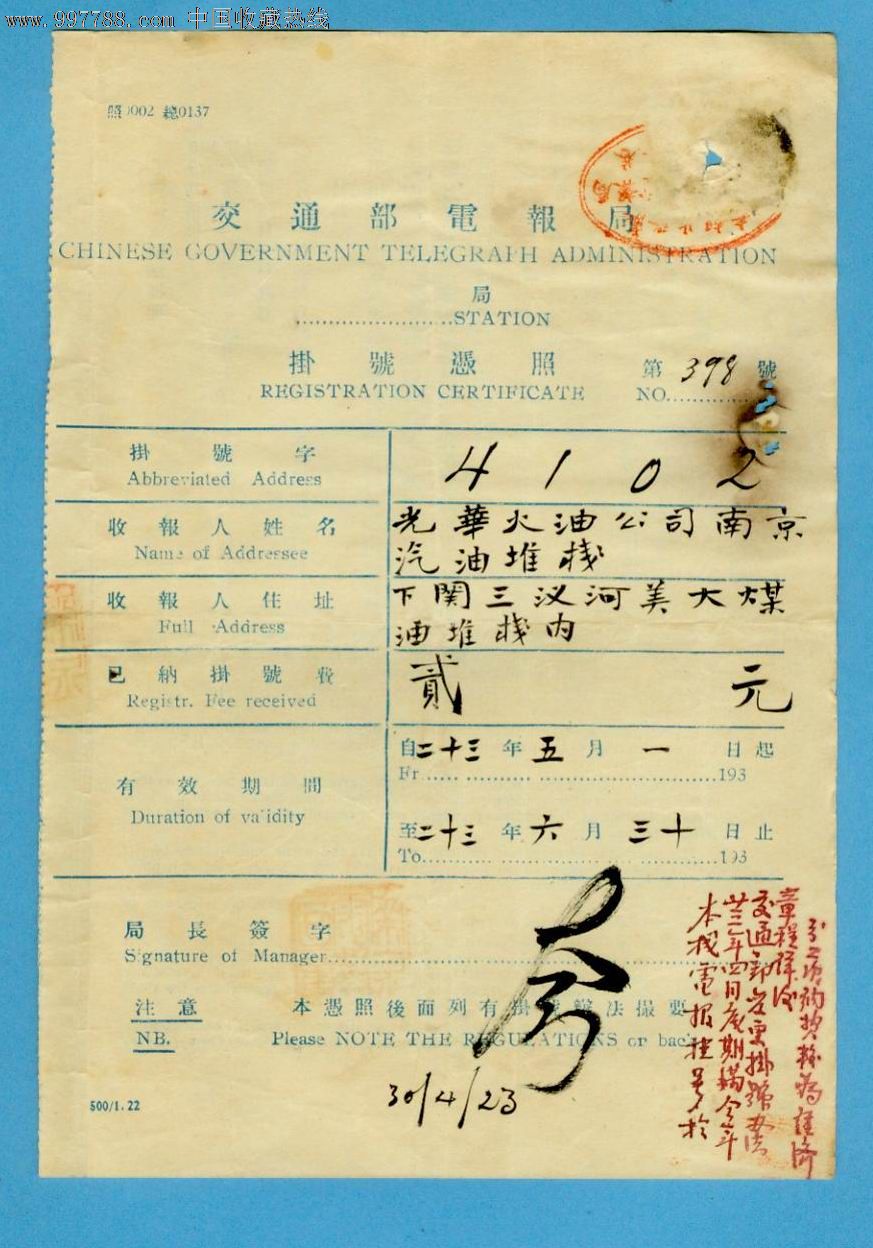 www.997788.com 中国收藏热线
照1002 總0137
交通部電報局
CHINESE GOVERNMENT TELEGRAPH ADMINISTRATION
局
STATION
掛號憑照 第398號
REGISTRATION CERTIFICATE NO.
掛號字 4102
Abbreviated Address
收報人姓名 光華火油公司南京
Name of Addressee 汽油堆棧
收報人住址 下関三汊河美大煤
Full Address 油堆棧內
已納掛號費 貳元
Registr. Fee received
自二十三年五月一日起
Fr. 193
有效期間
Duration of validity
至二十三年六月三十日止
To 193
局長簽字
Signature of Manager
注意 本憑照後面列有掛號辦法撮要
NB. Please NOTE THE REGULATIONS on back
30/4/23
500/1.22
本棧電报挂号於
廿三年四月底期满今年
交通部岩更掛號办法
章程